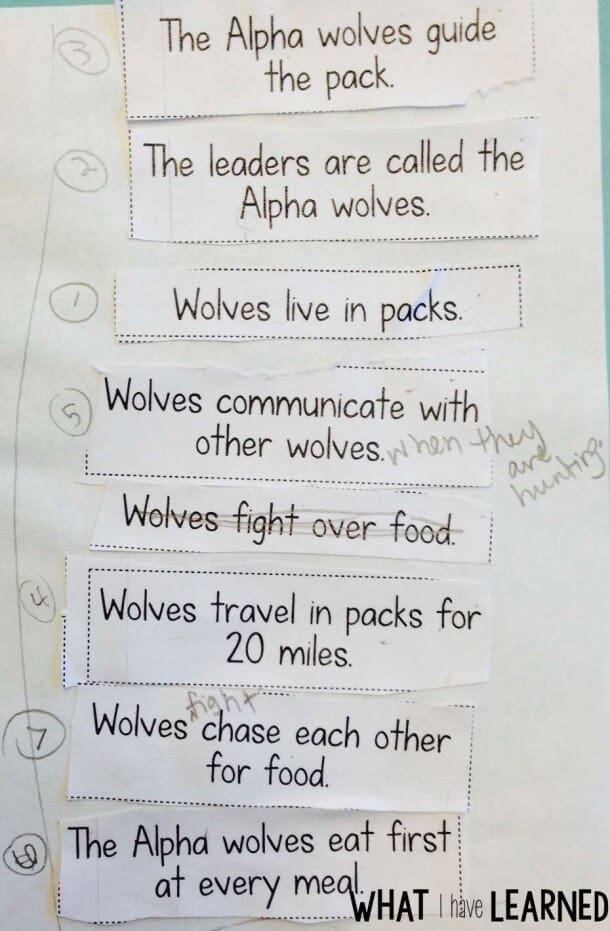 3 The Alpha wolves guide
the pack.
2 The leaders are called the
Alpha wolves.
1 Wolves live in packs.
5 Wolves communicate with
other wolves. when they
are
hunting.
Wolves fight over food.
4 Wolves travel in packs for
20 miles.
fight
7 Wolves chase each other
for food.
The Alpha wolves eat first
at every meal.
WHAT I have LEARNED